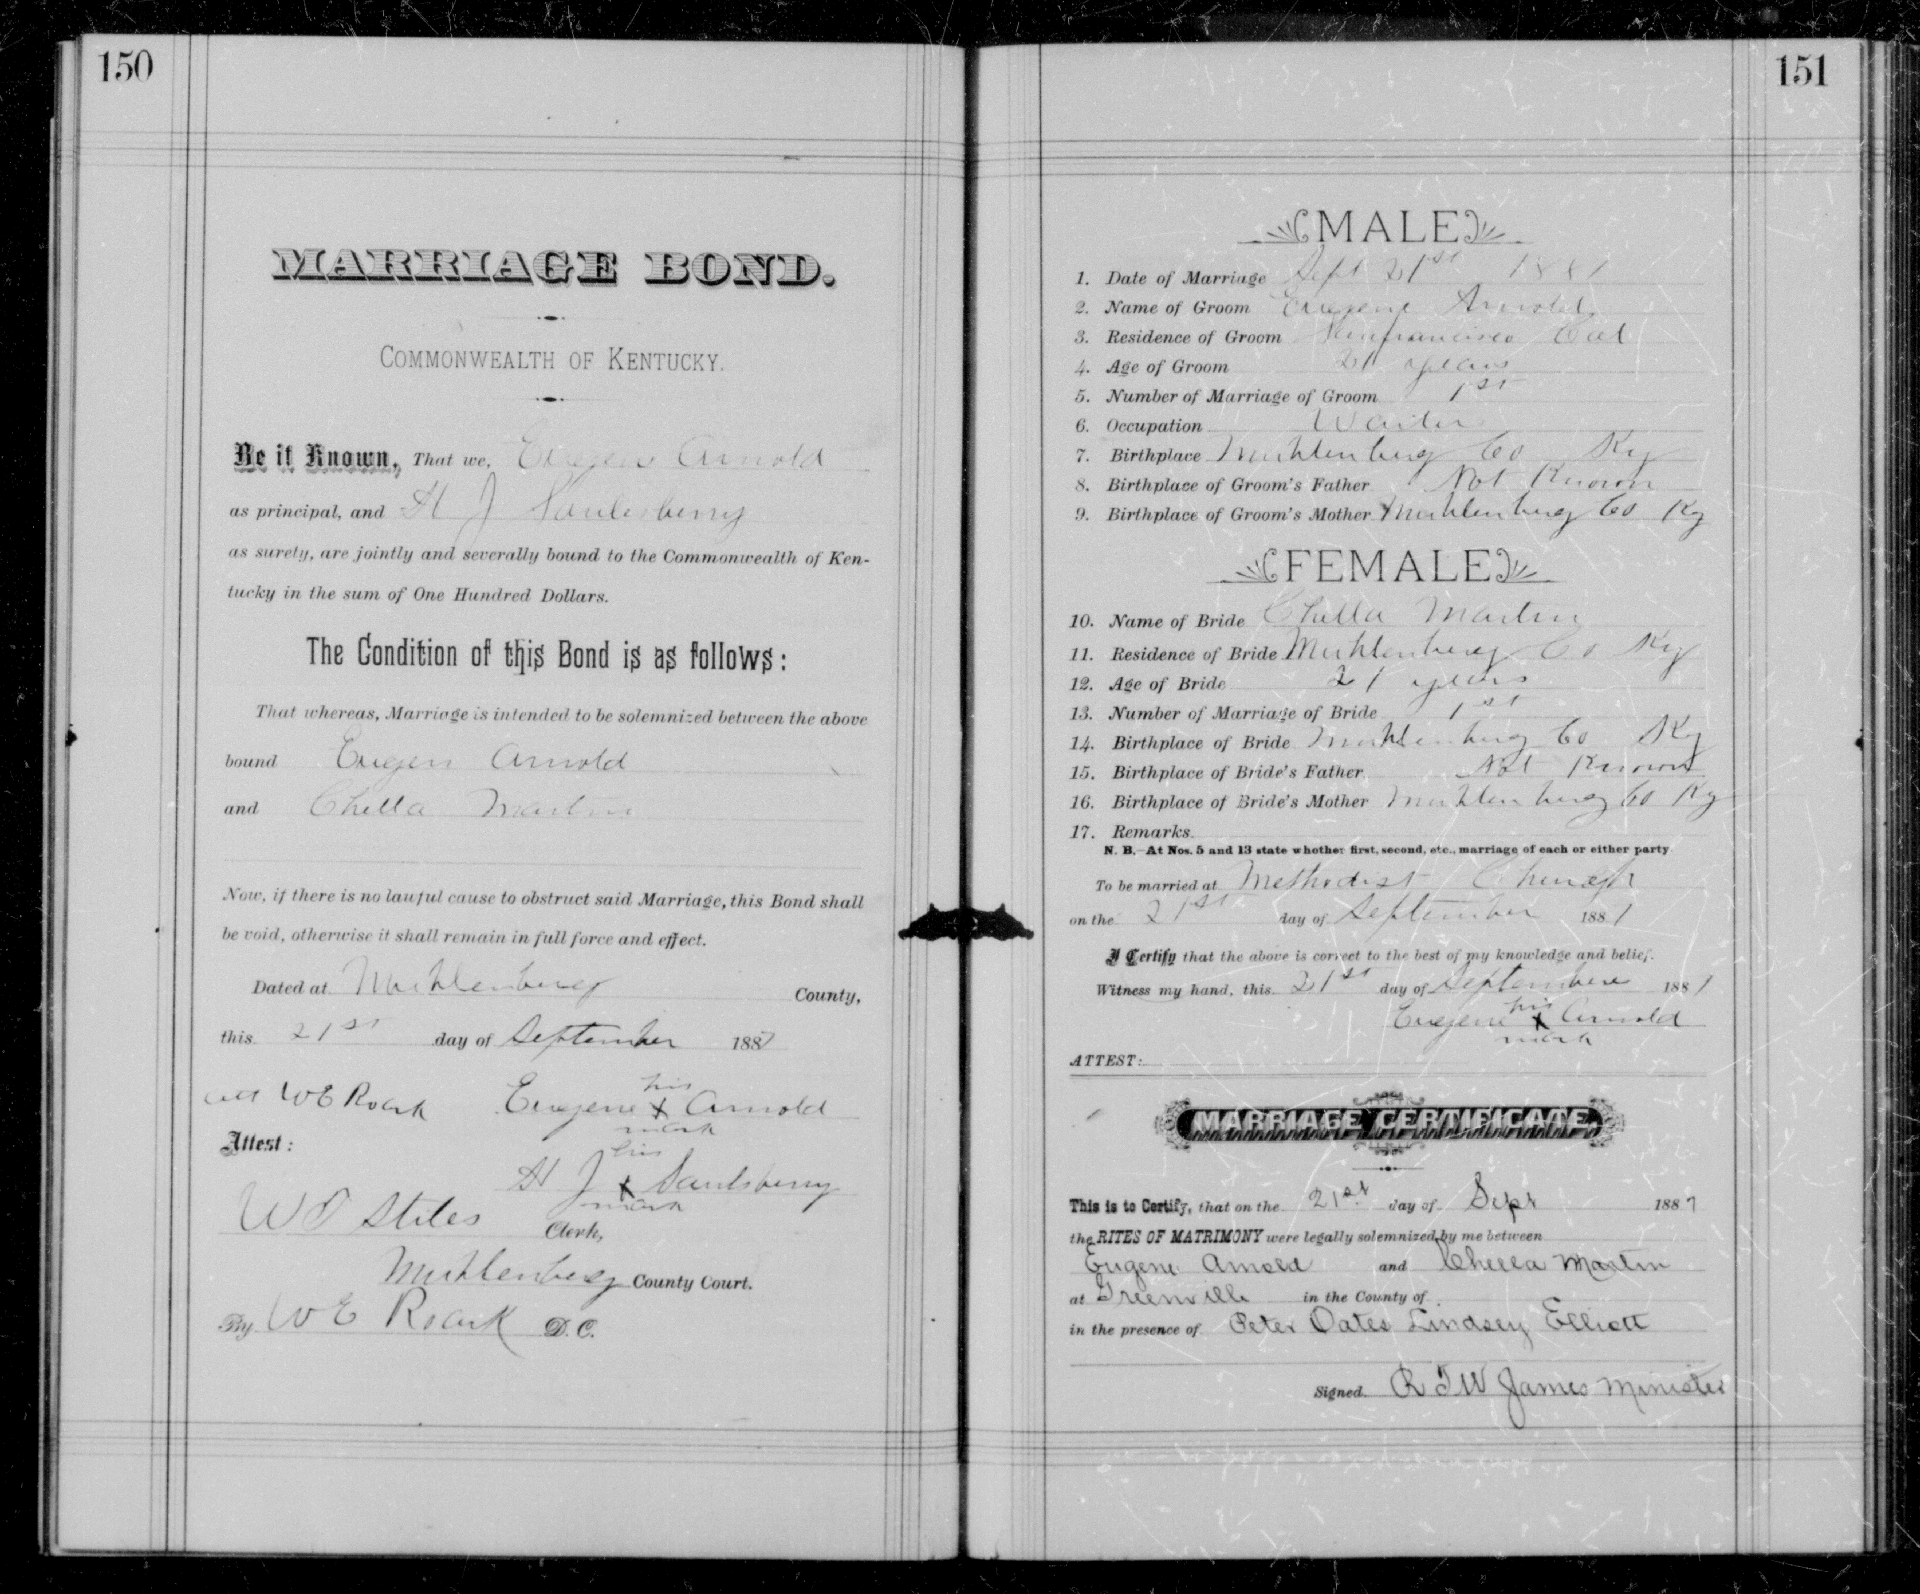 150
MARRIAGE BOND.
COMMONWEALTH OF KENTUCKY.
Be it Known, That we, Eugene Arnold
as principal, and H J Saulesberry
as surety, are jointly and severally bound to the Commonwealth of Ken-
tucky in the sum of One Hundred Dollars.
The Condition of this Bond is as follows:
That whereas, Marriage is intended to be solemnized between the above
bound Eugen Arnold
and Chella Martin
Now, if there is no lawful cause to obstruct said Marriage, this Bond shall
be void, otherwise it shall remain in full force and effect.
Dated at Muhlenberg County,
this 21st day of September 1887
att W E Roark Eugene his x mark Arnold
Attest:
H J his x mark Saulsberry
W T Stiles Clerk,
Muhlenberg County Court.
By W E Roark D. C.
151
MALE
1. Date of Marriage Sept 21st 1887
2. Name of Groom Eugene Arnold
3. Residence of Groom Sanfrancisco Cal
4. Age of Groom 21 years
5. Number of Marriage of Groom 1st
6. Occupation Waiter
7. Birthplace Muhlenberg Co Ky
8. Birthplace of Groom's Father Not Known
9. Birthplace of Groom's Mother Muhlenberg Co Ky
FEMALE
10. Name of Bride Chella Martin
11. Residence of Bride Muhlenberg Co Ky
12. Age of Bride 21 years
13. Number of Marriage of Bride 1st
14. Birthplace of Bride Muhlenberg Co Ky
15. Birthplace of Bride's Father Not Known
16. Birthplace of Bride's Mother Muhlenberg Co Ky
17. Remarks
N. B.—At Nos. 5 and 13 state whether first, second, etc., marriage of each or either party
To be married at Methodist Church
on the 21st day of September 1887
I Certify that the above is correct to the best of my knowledge and belief.
Witness my hand, this 21st day of September 1887
Eugene his x mark Arnold
ATTEST:
MARRIAGE CERTIFICATE.
This is to Certify, that on the 21st day of Sept 1887
the RITES OF MATRIMONY were legally solemnized by me between
Eugene Arnold and Chella Martin
at Greenville in the County of
in the presence of Peter Oates Lindsey Elliott
Signed R T W James Minister